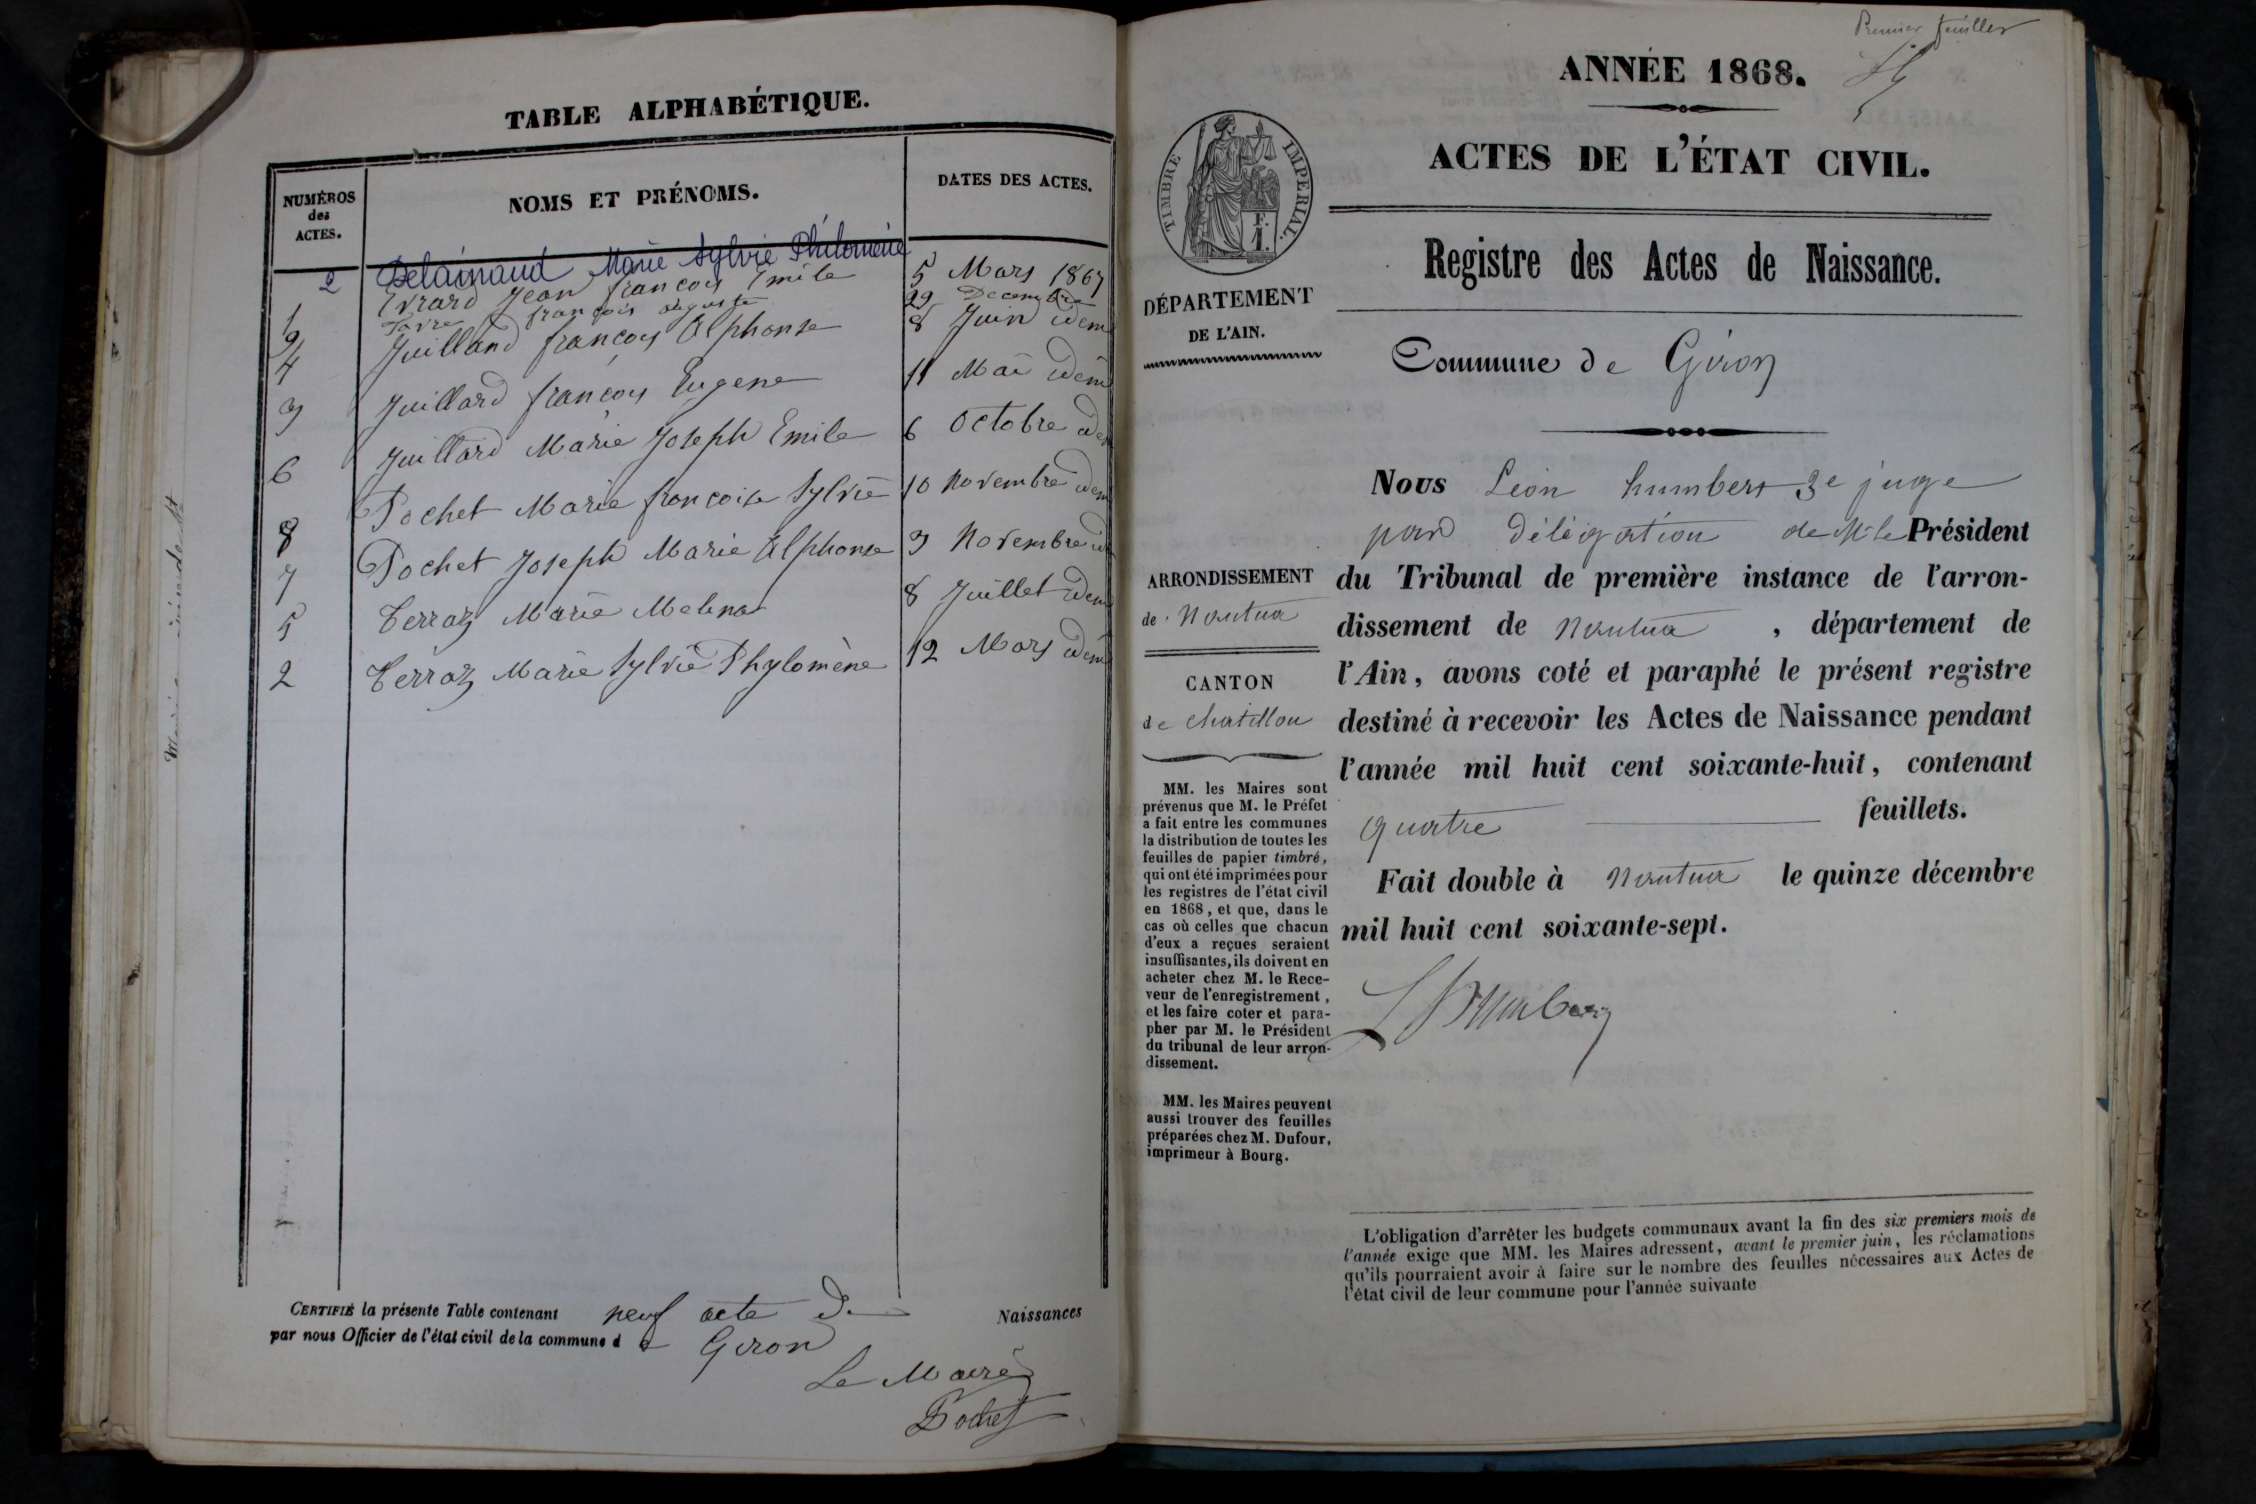 TABLE ALPHABÉTIQUE.
NUMÉROS
des
ACTES.
NOMS ET PRÉNOMS.
DATES DES ACTES.
2 Delainaud Marie Sylvie Philomène
1 Evrard Jean françois Emile 5 Mars 1867
9 françois auguste 29 Decembre
4 Juilland françois Alphonse 8 Juin idem
3 Juillard françois Eugene 11 Mai idem
6 Juillard Marie Joseph Emile 6 Octobre idem
8 Pochet Marie francoise Sylvie 10 Novembre idem
7 Pochet Joseph Marie Alphonse 3 Novembre
5 Terraz Marie Melina 8 Juillet idem
2 Terraz Marie Sylvie Phylomène 12 Mars idem
CERTIFIÉ la présente Table contenant neuf acte de Naissances
par nous Officier de l'état civil de la commune de Giron
Le Maire
Pochet
Premier feuillet
ANNÉE 1868.
ACTES DE L'ÉTAT CIVIL.
TIMBRE IMPERIAL.
Registre des Actes de Naissance.
DÉPARTEMENT
DE L'AIN.
Commune de Giron
ARRONDISSEMENT
de Nantua
CANTON
de chatillon
MM. les Maires sont
prévenus que M. le Préfet
a fait entre les communes
la distribution de toutes les
feuilles de papier timbré,
qui ont été imprimées pour
les registres de l'état civil
en 1868, et que, dans le
cas où celles que chacun
d'eux a reçues seraient
insuffisantes, ils doivent en
acheter chez M. le Rece-
veur de l'enregistrement,
et les faire coter et para-
pher par M. le Président
du tribunal de leur arron-
dissement.
MM. les Maires peuvent
aussi trouver des feuilles
préparées chez M. Dufour,
imprimeur à Bourg.
Nous Léon humbert 3e juge
par délégation de Mr le Président
du Tribunal de première instance de l'arron-
dissement de nantua, département de
l'Ain, avons coté et paraphé le présent registre
destiné à recevoir les Actes de Naissance pendant
l'année mil huit cent soixante-huit, contenant
quatre feuillets.
Fait double à nantua le quinze décembre
mil huit cent soixante-sept.
L Humbert
L'obligation d'arrêter les budgets communaux avant la fin des six premiers mois de
l'année exige que MM. les Maires adressent, avant le premier juin, les réclamations
qu'ils pourraient avoir à faire sur le nombre des feuilles nécessaires aux Actes de
l'état civil de leur commune pour l'année suivante